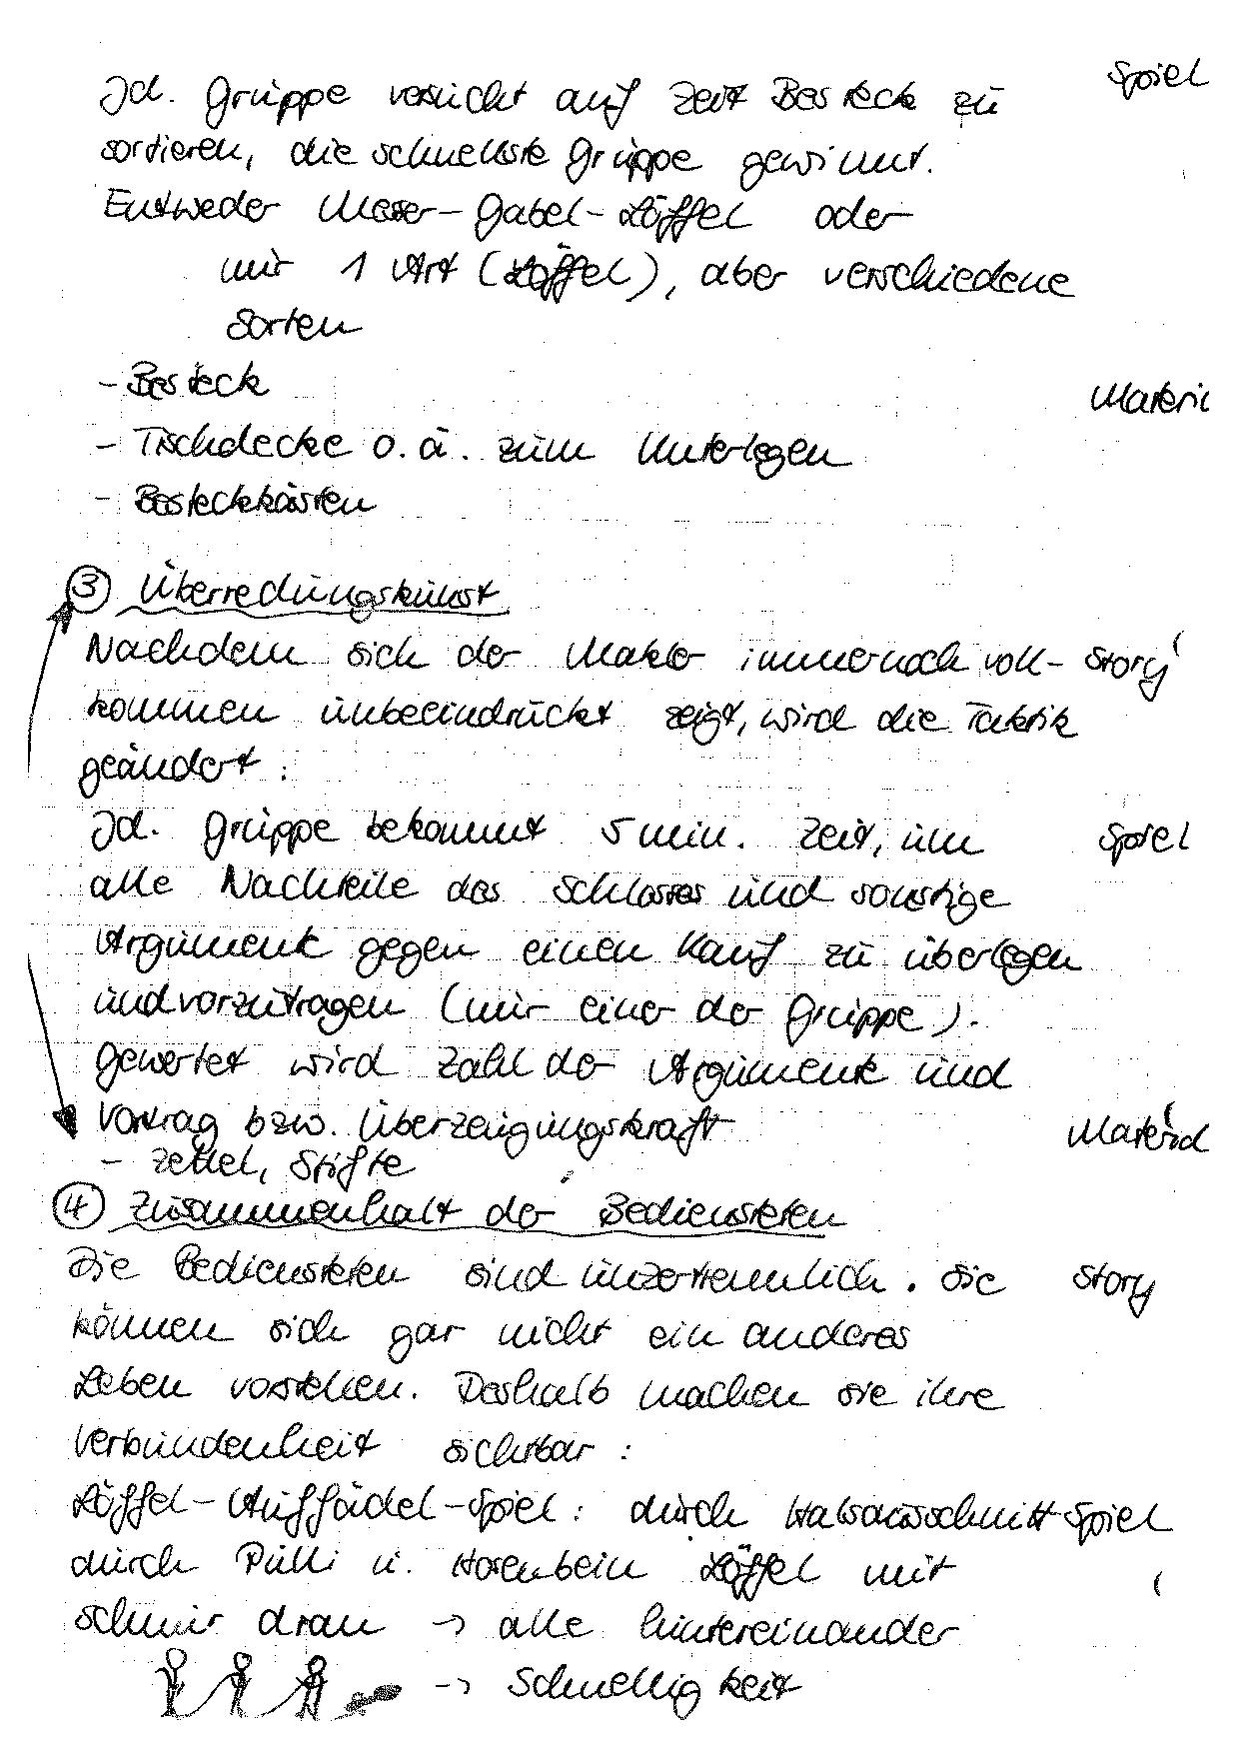 Jd. Gruppe versucht auf Zeit Besteck zu Spiel
sortieren, die schnellste Gruppe gewinnt.
Entweder Messer-Gabel-Löffel oder
nur 1 Art (Löffel), aber verschiedene
Sorten
- Besteck Materi
- Tischdecke o.ä. zum Unterlegen
- Besteckkästen
③ Überredungskunst
Nachdem sich der Makler immernoch voll- Story
kommen unbeeindruckt zeigt, wird die Taktik
geändert:
Jd. Gruppe bekommt 5 min. Zeit, um Spiel
alle Nachteile des Schlosses und sonstige
Argumente gegen einen Kauf zu überlegen
und vorzutragen (nur einer der Gruppe).
Gewertet wird Zahl der Argumente und
Vortrag bzw. Überzeugungskraft Material
- Zettel, Stifte
④ Zusammenhalt der Bediensteten
Die Bediensteten sind unzertrennlich. Sie Story
können sich gar nicht ein anderes
Leben vorstellen. Deshalb machen sie ihre
Verbundenheit sichtbar:
Löffel-Auffädel-Spiel: durch Halsausschnitt Spiel
durch Pulli u. Hosenbein Löffel mit
Schnur dran → alle hintereinander
→ Schnelligkeit